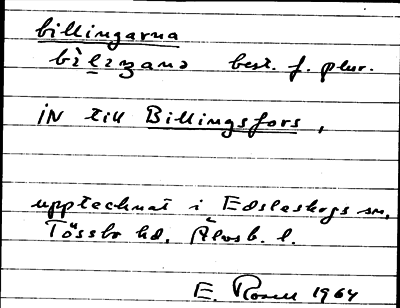 billingarna
bìlıŋana best. f. plur.
IN till Billingsfors,
upptecknat i Edsleskogs sn,
Tössbo hd. Älvsb. l.
E. Rosell 1964